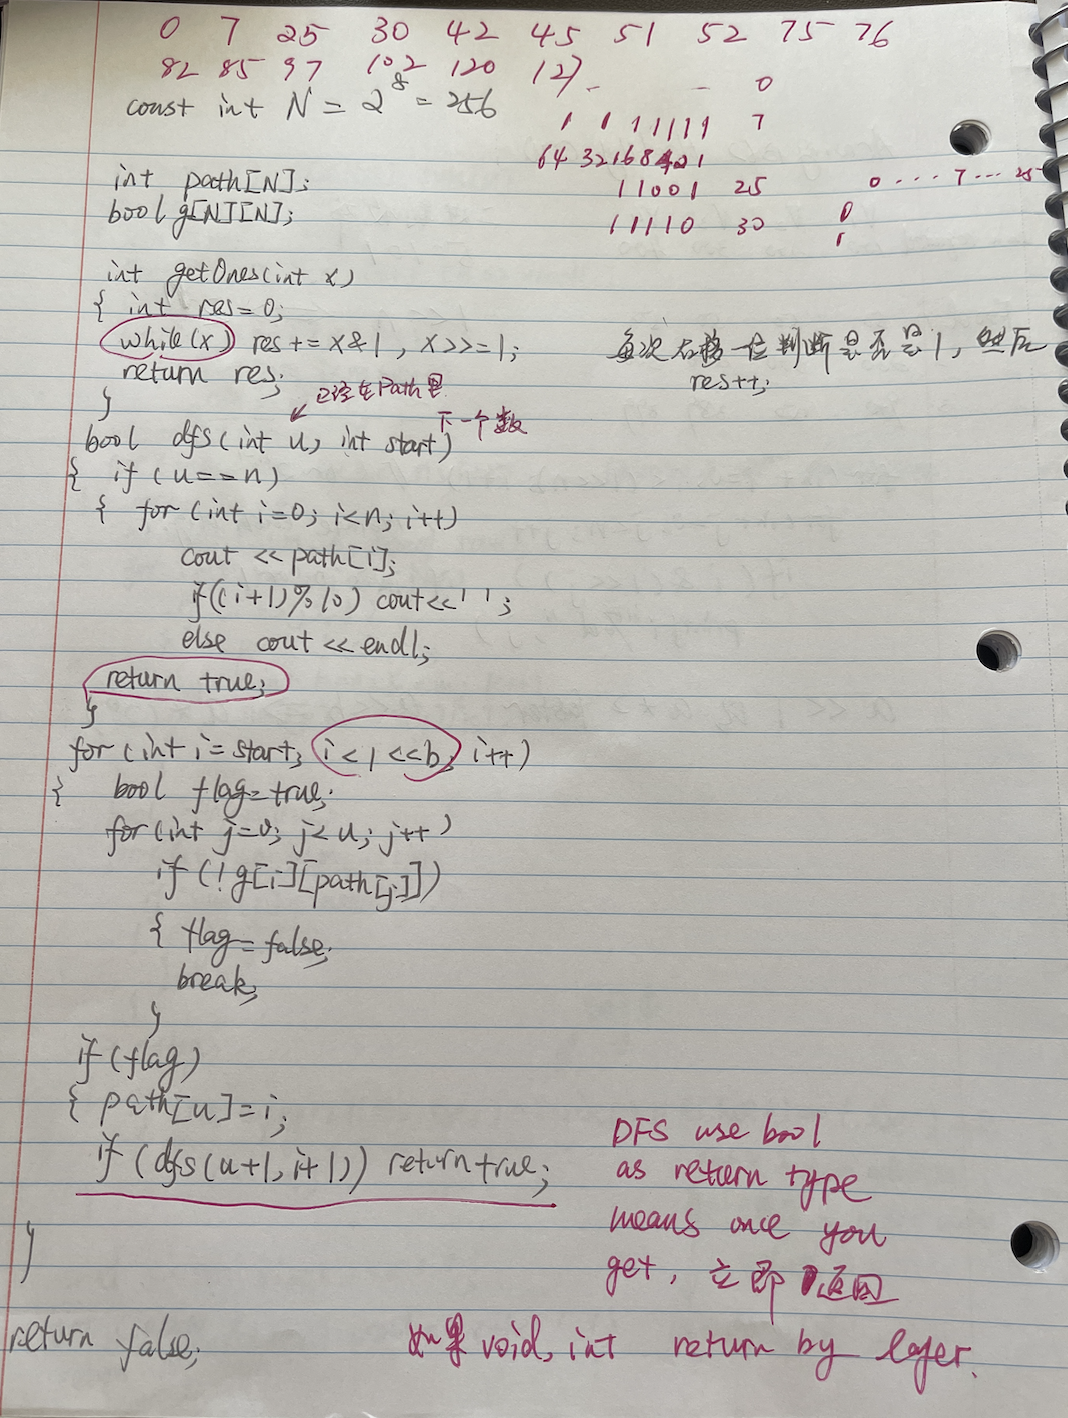 0 7 25 30 42 45 51 52 75 76
82 85 97 102 120 127
const int N = 2^8 = 256
0
1 1 1 1 1 1 1 7
64 32 16 8 4 2 1
1 1 0 0 1 25
1 1 1 1 0 30
0 .... 7 ... 25
0
1
int path[N];
bool g[N][N];
int getOnes(int x)
{ int res=0;
while(x) res += x&1, x>>=1;
return res;
}
每次右移一位判断是否是1, 然后
res++;
已经在Path里
下一个数
bool dfs(int u, int start)
{ if (u==n)
{ for (int i=0; i<n; i++)
cout << path[i];
if((i+1)%10) cout<<' ';
else cout << endl;
return true;
}
for (int i=start; i<1<<b; i++)
{ bool flag=true;
for(int j=0; j<u; j++)
if (!g[i][path[j]])
{ flag=false;
break;
}
if (flag)
{ path[u]=i;
if (dfs(u+1, i+1)) return true;
}
return false;
DFS use bool
as return type
means once you
get, 立即返回
如果void, int return by layer.